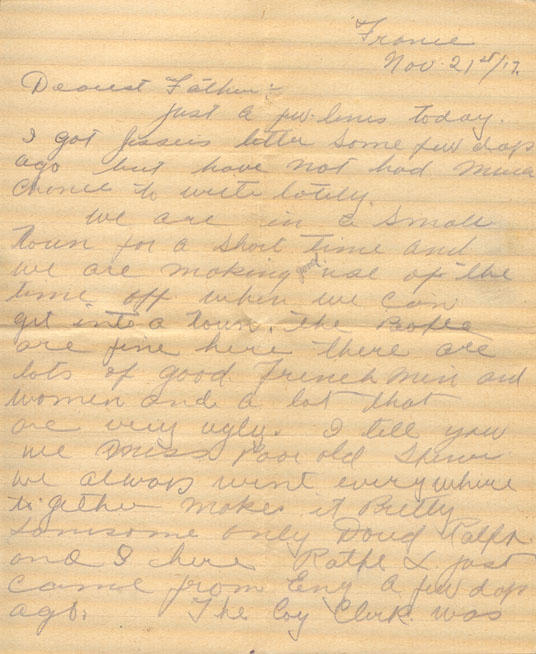 France
Nov. 21st/17.
Dearest Father:-
Just a few lines today.
I got Jessies letter some few days
ago but have not had much
chance to write lately.
We are in a small
town for a short time and
we are making good use of the
time off when we can
get into a town. The People
are fine here there are
lots of good French men and
women and a lot that
are very ugly. I tell you
we miss Poor old
we always went everywhere
together makes it Pretty
lonsome only Doug Ralph
and I here Ralph & I just
came from Eng a few days
ago. The Coy Clerk was